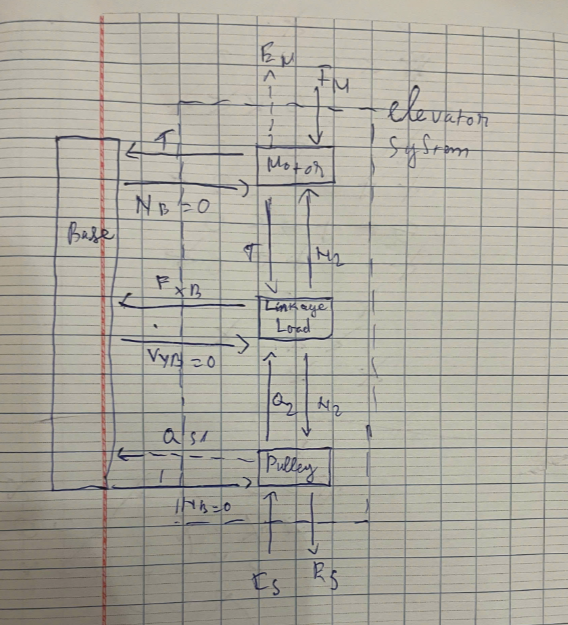 E_M
I_M
elevator
System
T
Motor
N_B = 0
Base
T
N_2
F_xB
Linkage
Load
V_YB = 0
Q_2
N_2
Q_S1
Pulley
N_B = 0
E_S